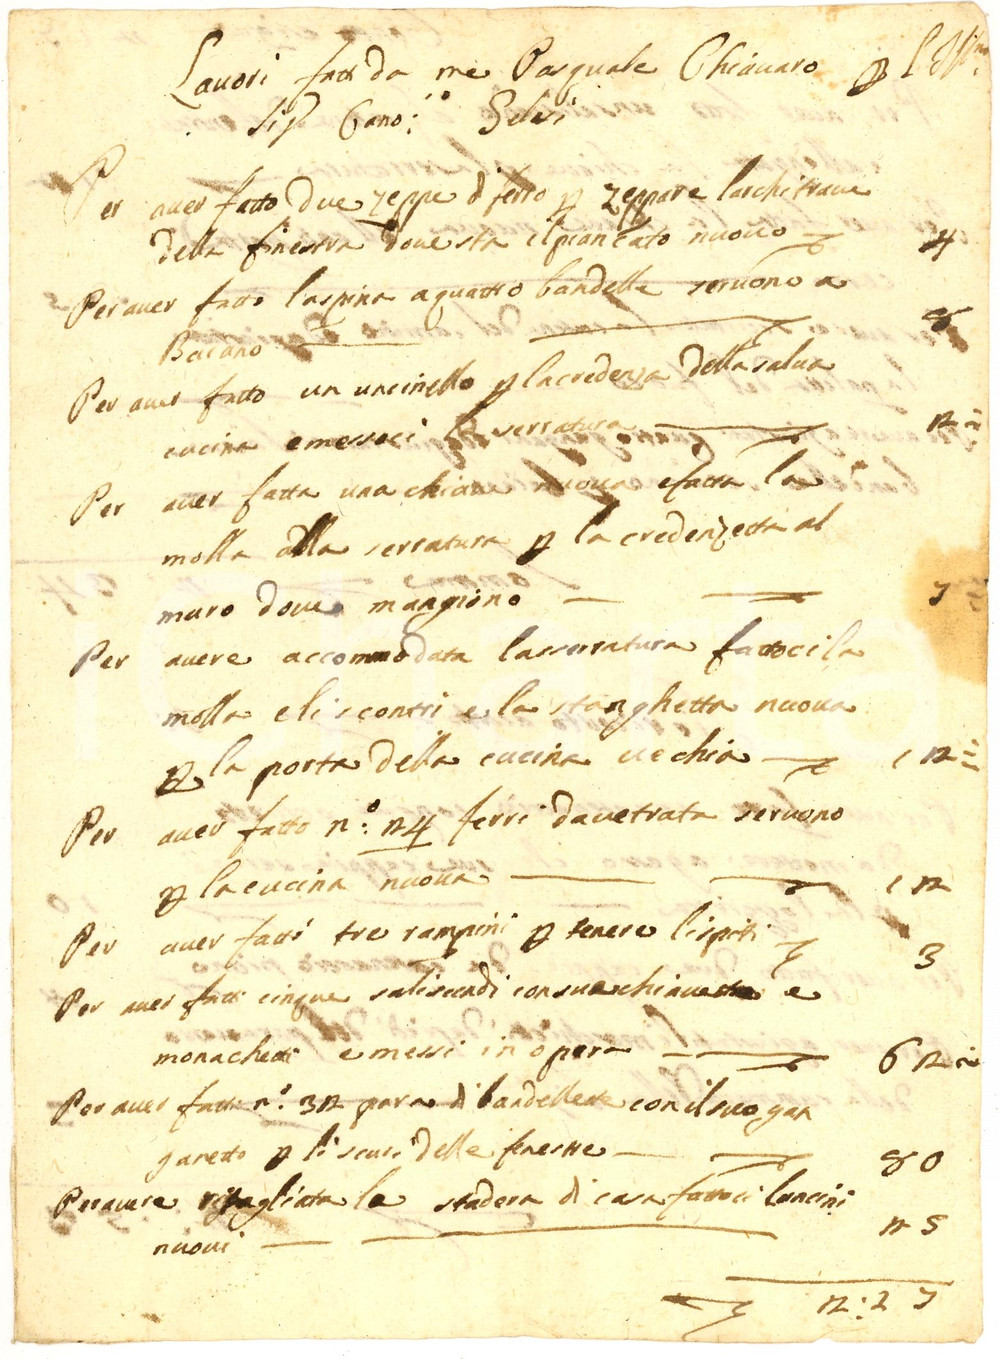 Lavori fatti da me Pasquale Chiavaro p l'Ill
Sig Cano: Gelosi
Per aver fatto due zeppe di ferro p zeppare larchitrave
della finestra dove sta il piancato nuovo 4
Per aver fatto laspina a quattro bandelle servono a
Bacano 8
Per aver fatto un uncinello p lacredenza della salva
cucina e messoci la serratura 12
Per aver fatta una chiave nuova e fatta la
molla alla serratura p la credenzetta al
muro dove mangiono 7
Per avere accommodata lasserratura fattoci la
molla e li scontri e la stanghetta nuova
p la porta della cucina vechia 12
Per aver fatto n.o 24 ferri da vetrata servono
p la cucina nuova 12
Per aver fatti tre rampini p tenere li spiti 3
Per aver fatti cinque saliscendi con sue chiavette e
monachetti e messi in opera 62
Per aver fatti n.o 32 para di bandellette con il suo gan
garetto p li scuri delle fenestre 80
Per avere ripagliata la stadera di casa fattoci lancini
nuovi 25
2:27